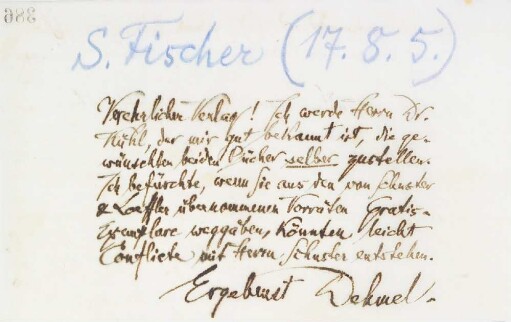 386
S. Fischer (17. 8. 5.)
Verehrlicher Verlag! Ich werde Herrn Dr.
Kühl, der mir gut bekannt ist, die ge-
wünschten beiden Bücher selber zustellen.
Ich befürchte, wenn Sie aus den von Schuster
& Loeffler übernommenen Vorräten Gratis-
exemplare weggäben, könnten leicht
Conflicte mit Herrn Schuster entstehen.
Ergebenst Dehmel.